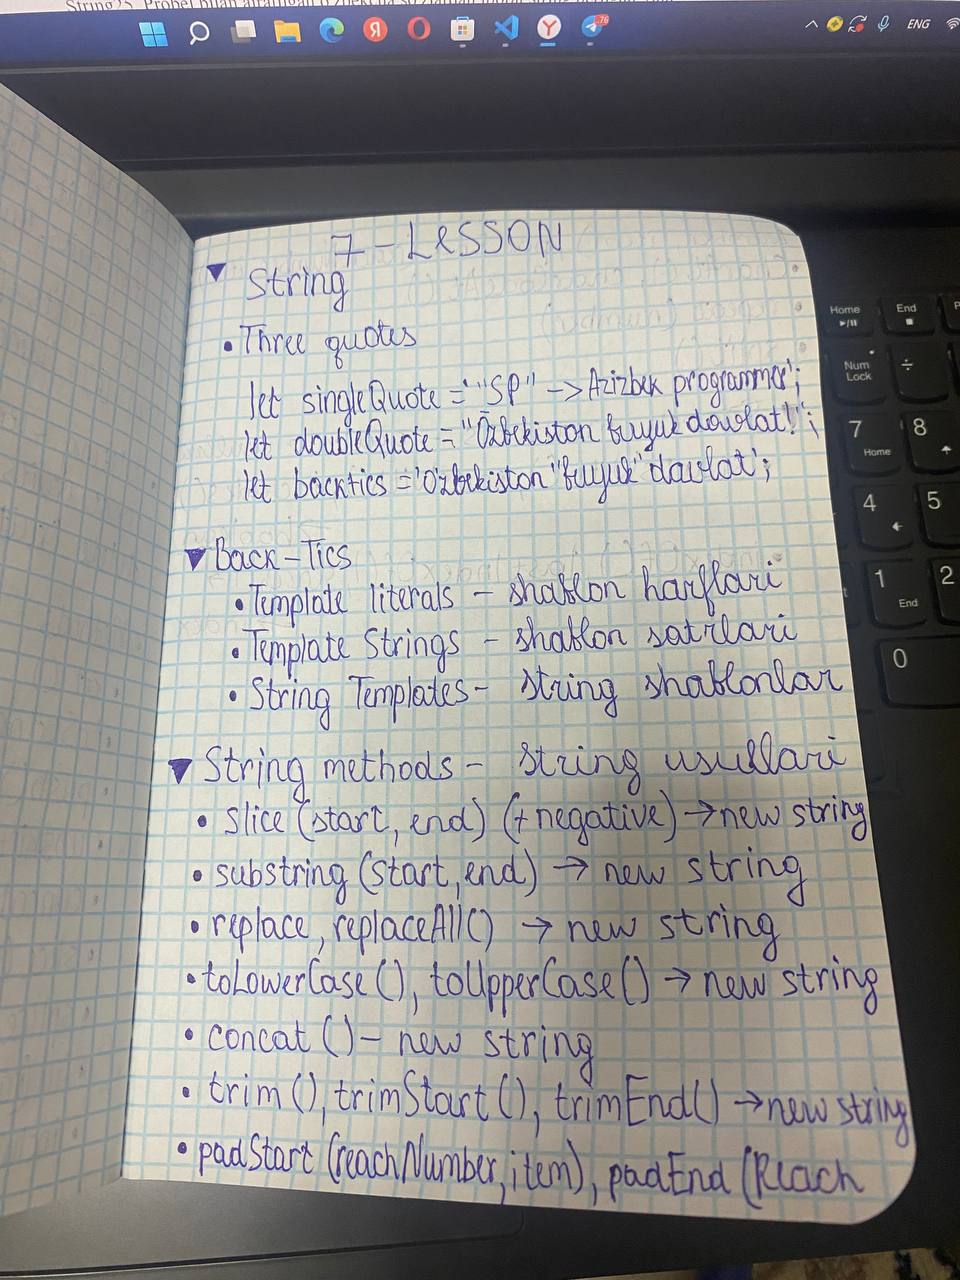 ENG
76
7 - LESSON
▼ String
• Three quotes
let singleQuote = '"SP" -> Azizbek programmer';
let doubleQuote = "O'zbekiston buyuk davlat!";
let backtics = 'O'zbekiston "buyuk" davlat';
▼ Back-Tics
• Template literals - shablon harflari
• Template Strings - shablon satrlari
• String Templates - string shablonlar
▼ String methods - string usullari
• slice (start, end) (+negative) → new string
• substring (start, end) → new string
• replace, replaceAll() → new string
• toLowerCase(), toUpperCase() → new string
• concat () - new string
• trim(), trimStart(), trimEnd() → new string
• padStart (reachNumber, item), padEnd (Reach
Home
End
Num Lock
÷
7
Home
8
4
5
1
End
2
0